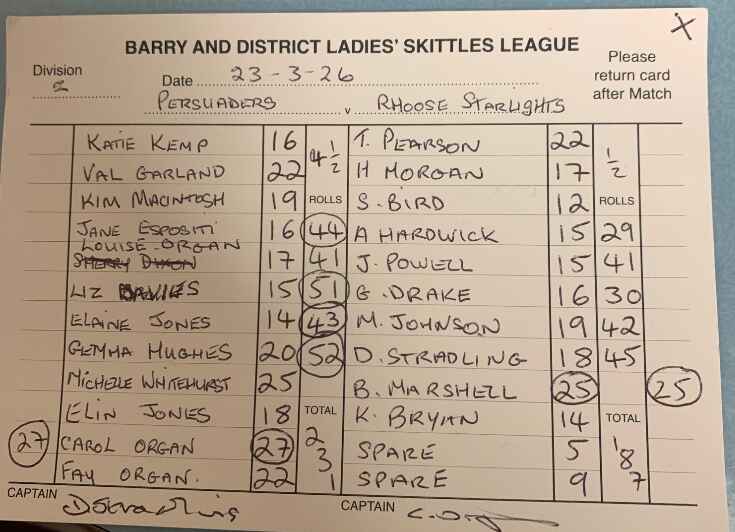 X
BARRY AND DISTRICT LADIES' SKITTLES LEAGUE
Division 2
Date 23-3-26
Please return card after Match
PERSUADERS v RHOOSE STARLIGHTS
KATIE KEMP 16 4 1/2 T. PEARSON 22 1/2
VAL GARLAND 22 H MORGAN 17
KIM MACINTOSH 19 ROLLS S. BIRD 12 ROLLS
JANE ESPOSITI 16 44 A HARDWICK 15 29
LOUISE ORGAN
SHERRY DIXON 17 41 J. POWELL 15 41
LIZ DAVIES 15 51 G. DRAKE 16 30
ELAINE JONES 14 43 M. JOHNSON 19 42
GEMMA HUGHES 20 52 D. STRADLING 18 45
MICHELE WHITEHURST 25 B. MARSHELL 25 25
ELIN JONES 18 TOTAL K. BRYAN 14 TOTAL
27 CAROL ORGAN 27 2 3 1 SPARE 5 1 8 7
FAY ORGAN. 22 SPARE 9
CAPTAIN CAPTAIN